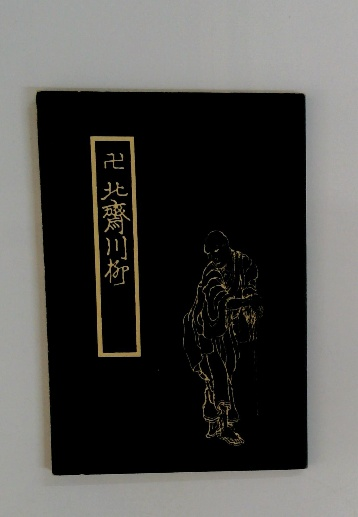 卍 北齋川柳